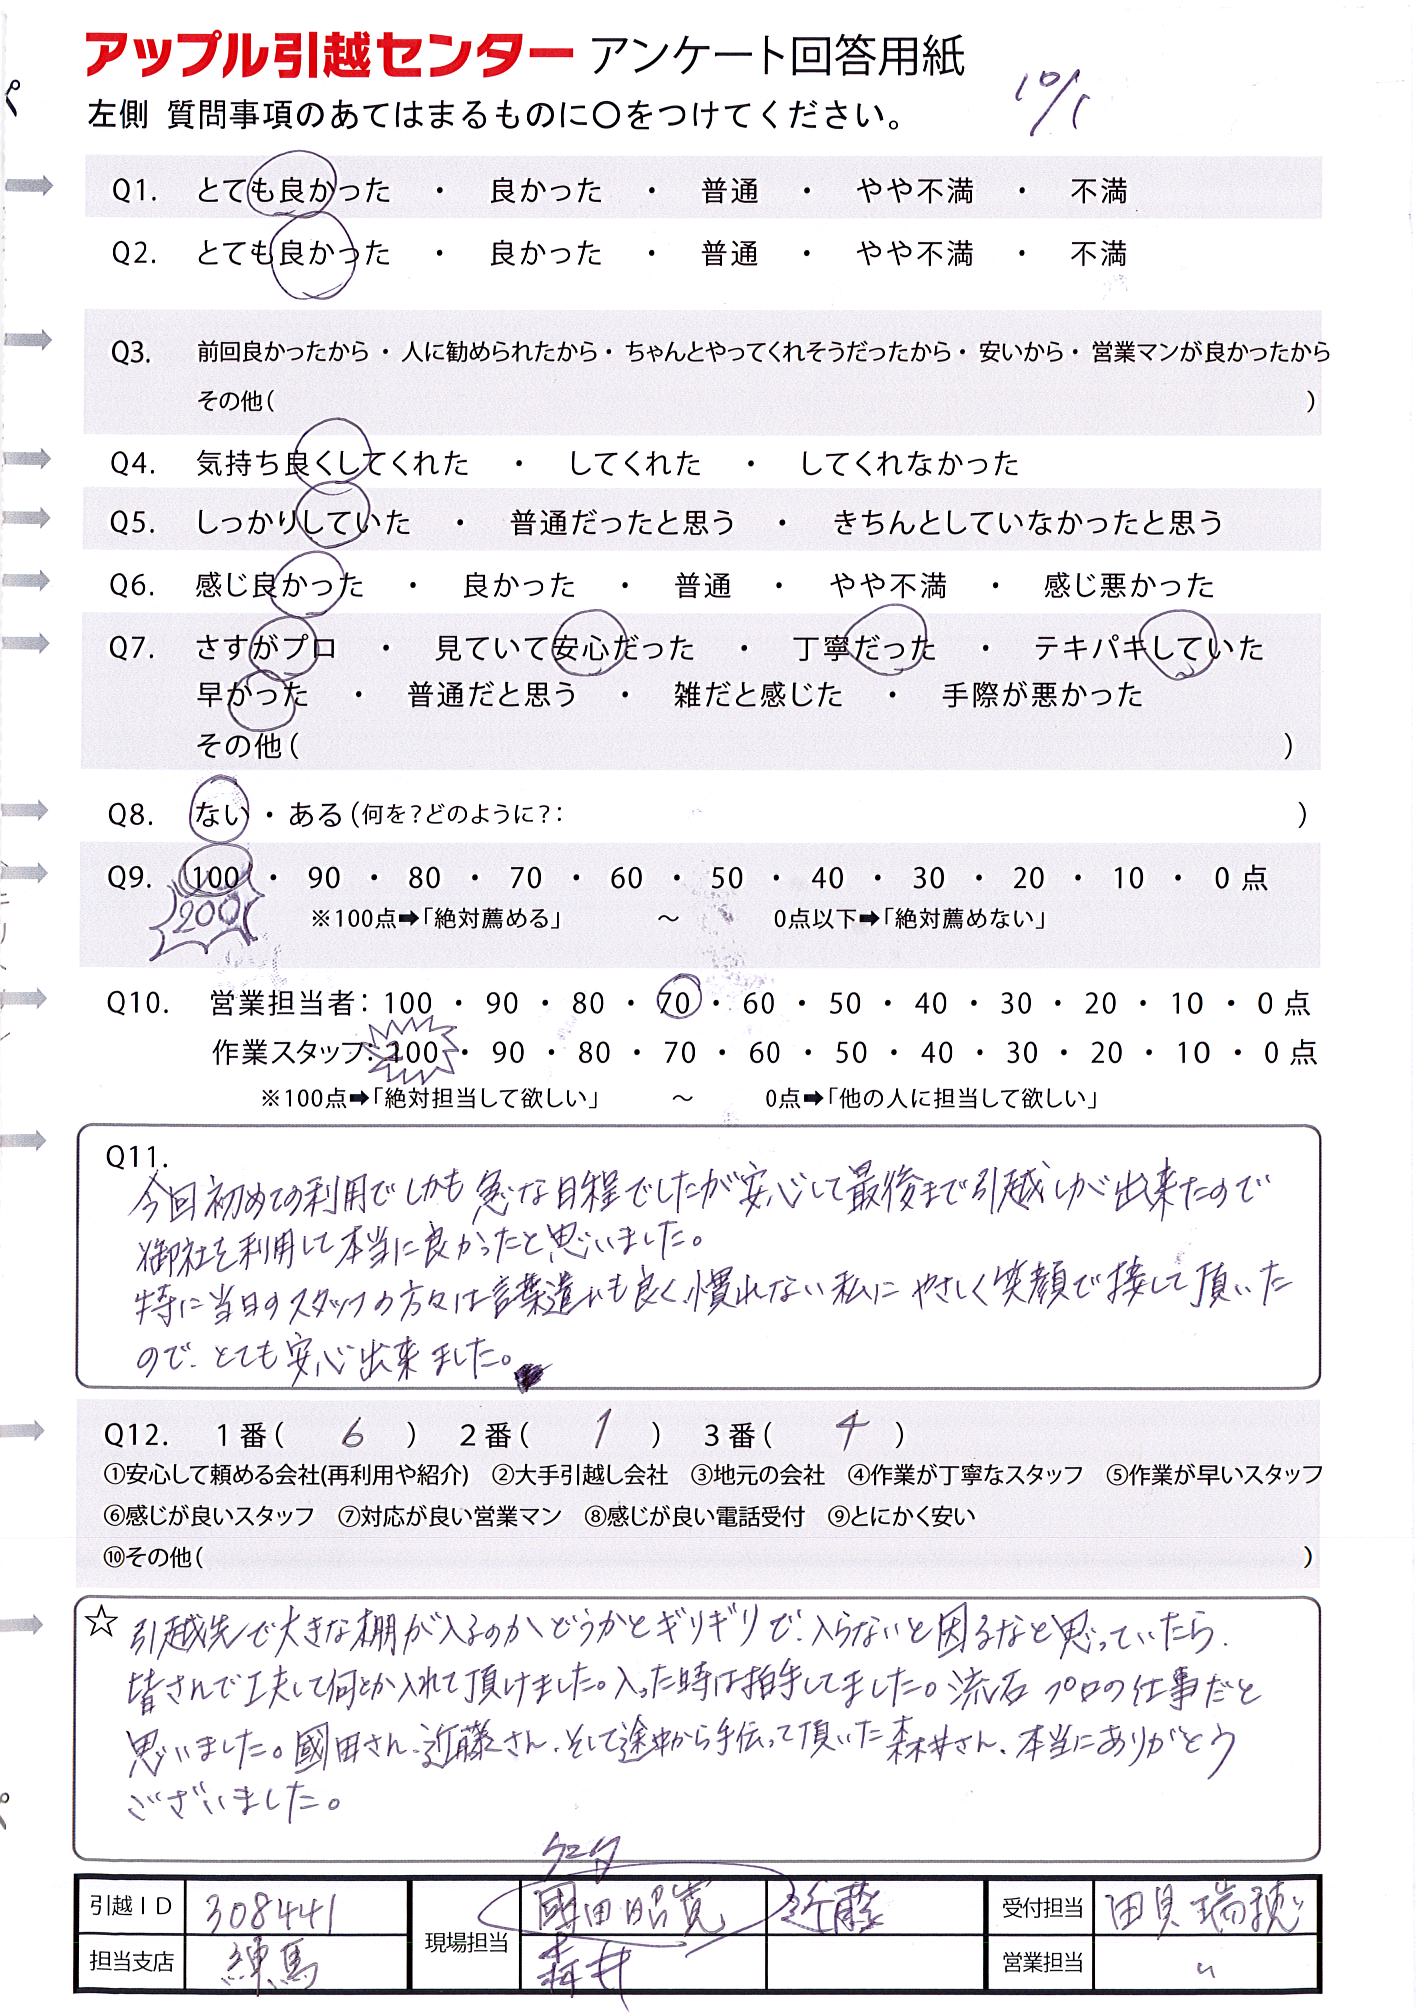 アップル引越センター アンケート回答用紙
10/1
左側 質問事項のあてはまるものに〇をつけてください。
Q1. とても良かった ・ 良かった ・ 普通 ・ やや不満 ・ 不満
Q2. とても良かった ・ 良かった ・ 普通 ・ やや不満 ・ 不満
Q3. 前回良かったから・人に勧められたから・ちゃんとやってくれそうだったから・安いから・営業マンが良かったから
その他( )
Q4. 気持ち良くしてくれた ・ してくれた ・ してくれなかった
Q5. しっかりしていた ・ 普通だったと思う ・ きちんとしていなかったと思う
Q6. 感じ良かった ・ 良かった ・ 普通 ・ やや不満 ・ 感じ悪かった
Q7. さすがプロ ・ 見ていて安心だった ・ 丁寧だった ・ テキパキしていた
早かった ・ 普通だと思う ・ 雑だと感じた ・ 手際が悪かった
その他( )
Q8. ない ・ ある(何を?どのように?: )
Q9. 100 ・ 90 ・ 80 ・ 70 ・ 60 ・ 50 ・ 40 ・ 30 ・ 20 ・ 10 ・ 0 点
200
※100点➡「絶対薦める」 ～ 0点以下➡「絶対薦めない」
Q10. 営業担当者: 100 ・ 90 ・ 80 ・ 70 ・ 60 ・ 50 ・ 40 ・ 30 ・ 20 ・ 10 ・ 0 点
作業スタッフ: 100 ・ 90 ・ 80 ・ 70 ・ 60 ・ 50 ・ 40 ・ 30 ・ 20 ・ 10 ・ 0 点
※100点➡「絶対担当して欲しい」 ～ 0点➡「他の人に担当して欲しい」
Q11.
今回初めての利用でしかも急な日程でしたが安心して最後まで引越しが出来たので
御社を利用して本当に良かったと思いました。
特に当日のスタッフの方々は言葉遣いも良く、慣れない私にやさしく笑顔で接して頂いた
ので、とても安心出来ました。
Q12. 1番( 6 ) 2番( 1 ) 3番( 4 )
①安心して頼める会社(再利用や紹介) ②大手引越し会社 ③地元の会社 ④作業が丁寧なスタッフ ⑤作業が早いスタッフ
⑥感じが良いスタッフ ⑦対応が良い営業マン ⑧感じが良い電話受付 ⑨とにかく安い
⑩その他( )
☆ 引越先で大きな棚が入るのかどうかとギリギリで、入らないと困るなと思っていたら、
皆さんで工夫して何とか入れて頂けました。入った時は拍手してました。流石プロの仕事だと
思いました。國田さん、近藤さん、そして途中から手伝って頂いた森井さん、本当にありがとう
ございました。
クニタ
引越ID 308441 現場担当 國田昭寛 近藤 受付担当 田貝瑞穂
担当支店 練馬 森井 営業担当 〃